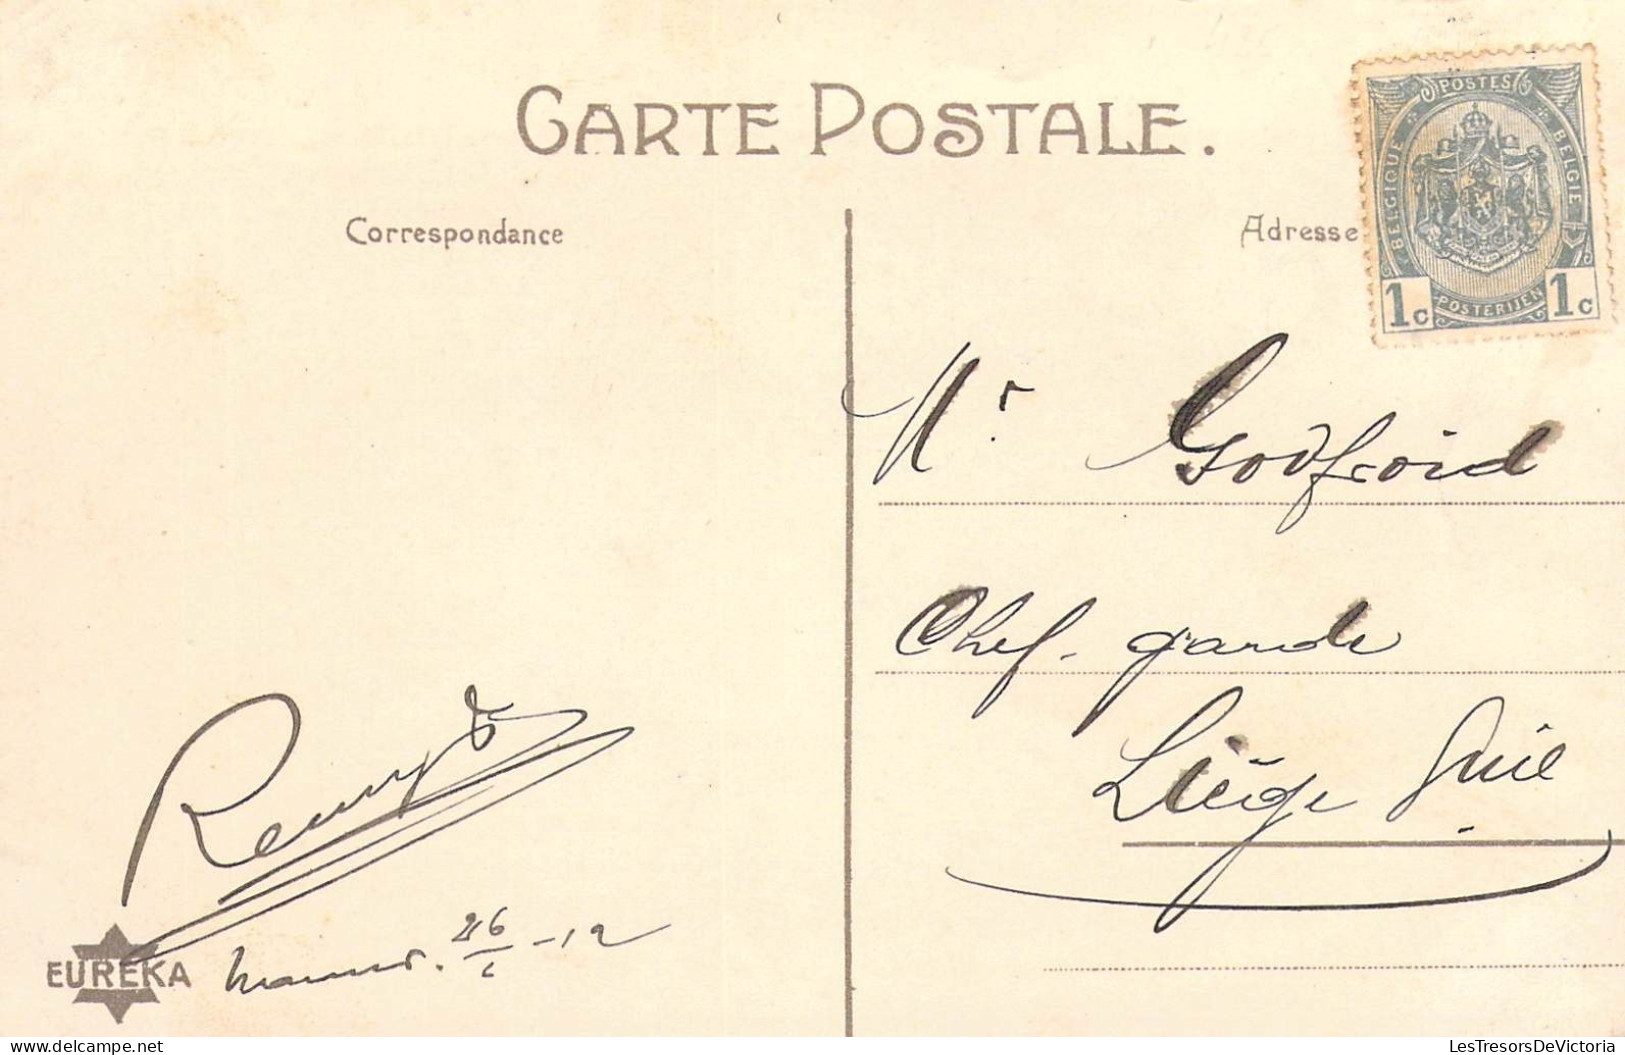 CARTE POSTALE.
Correspondance
Adresse
POSTES
BELGIQUE
BELGIE
1c
POSTERIJEN
1c
Mr. Godfroid
Chef-garde
Liège Guil
Remy
26 -12
EUREKA
LesTresorsDeVictoria
www.delcampe.net